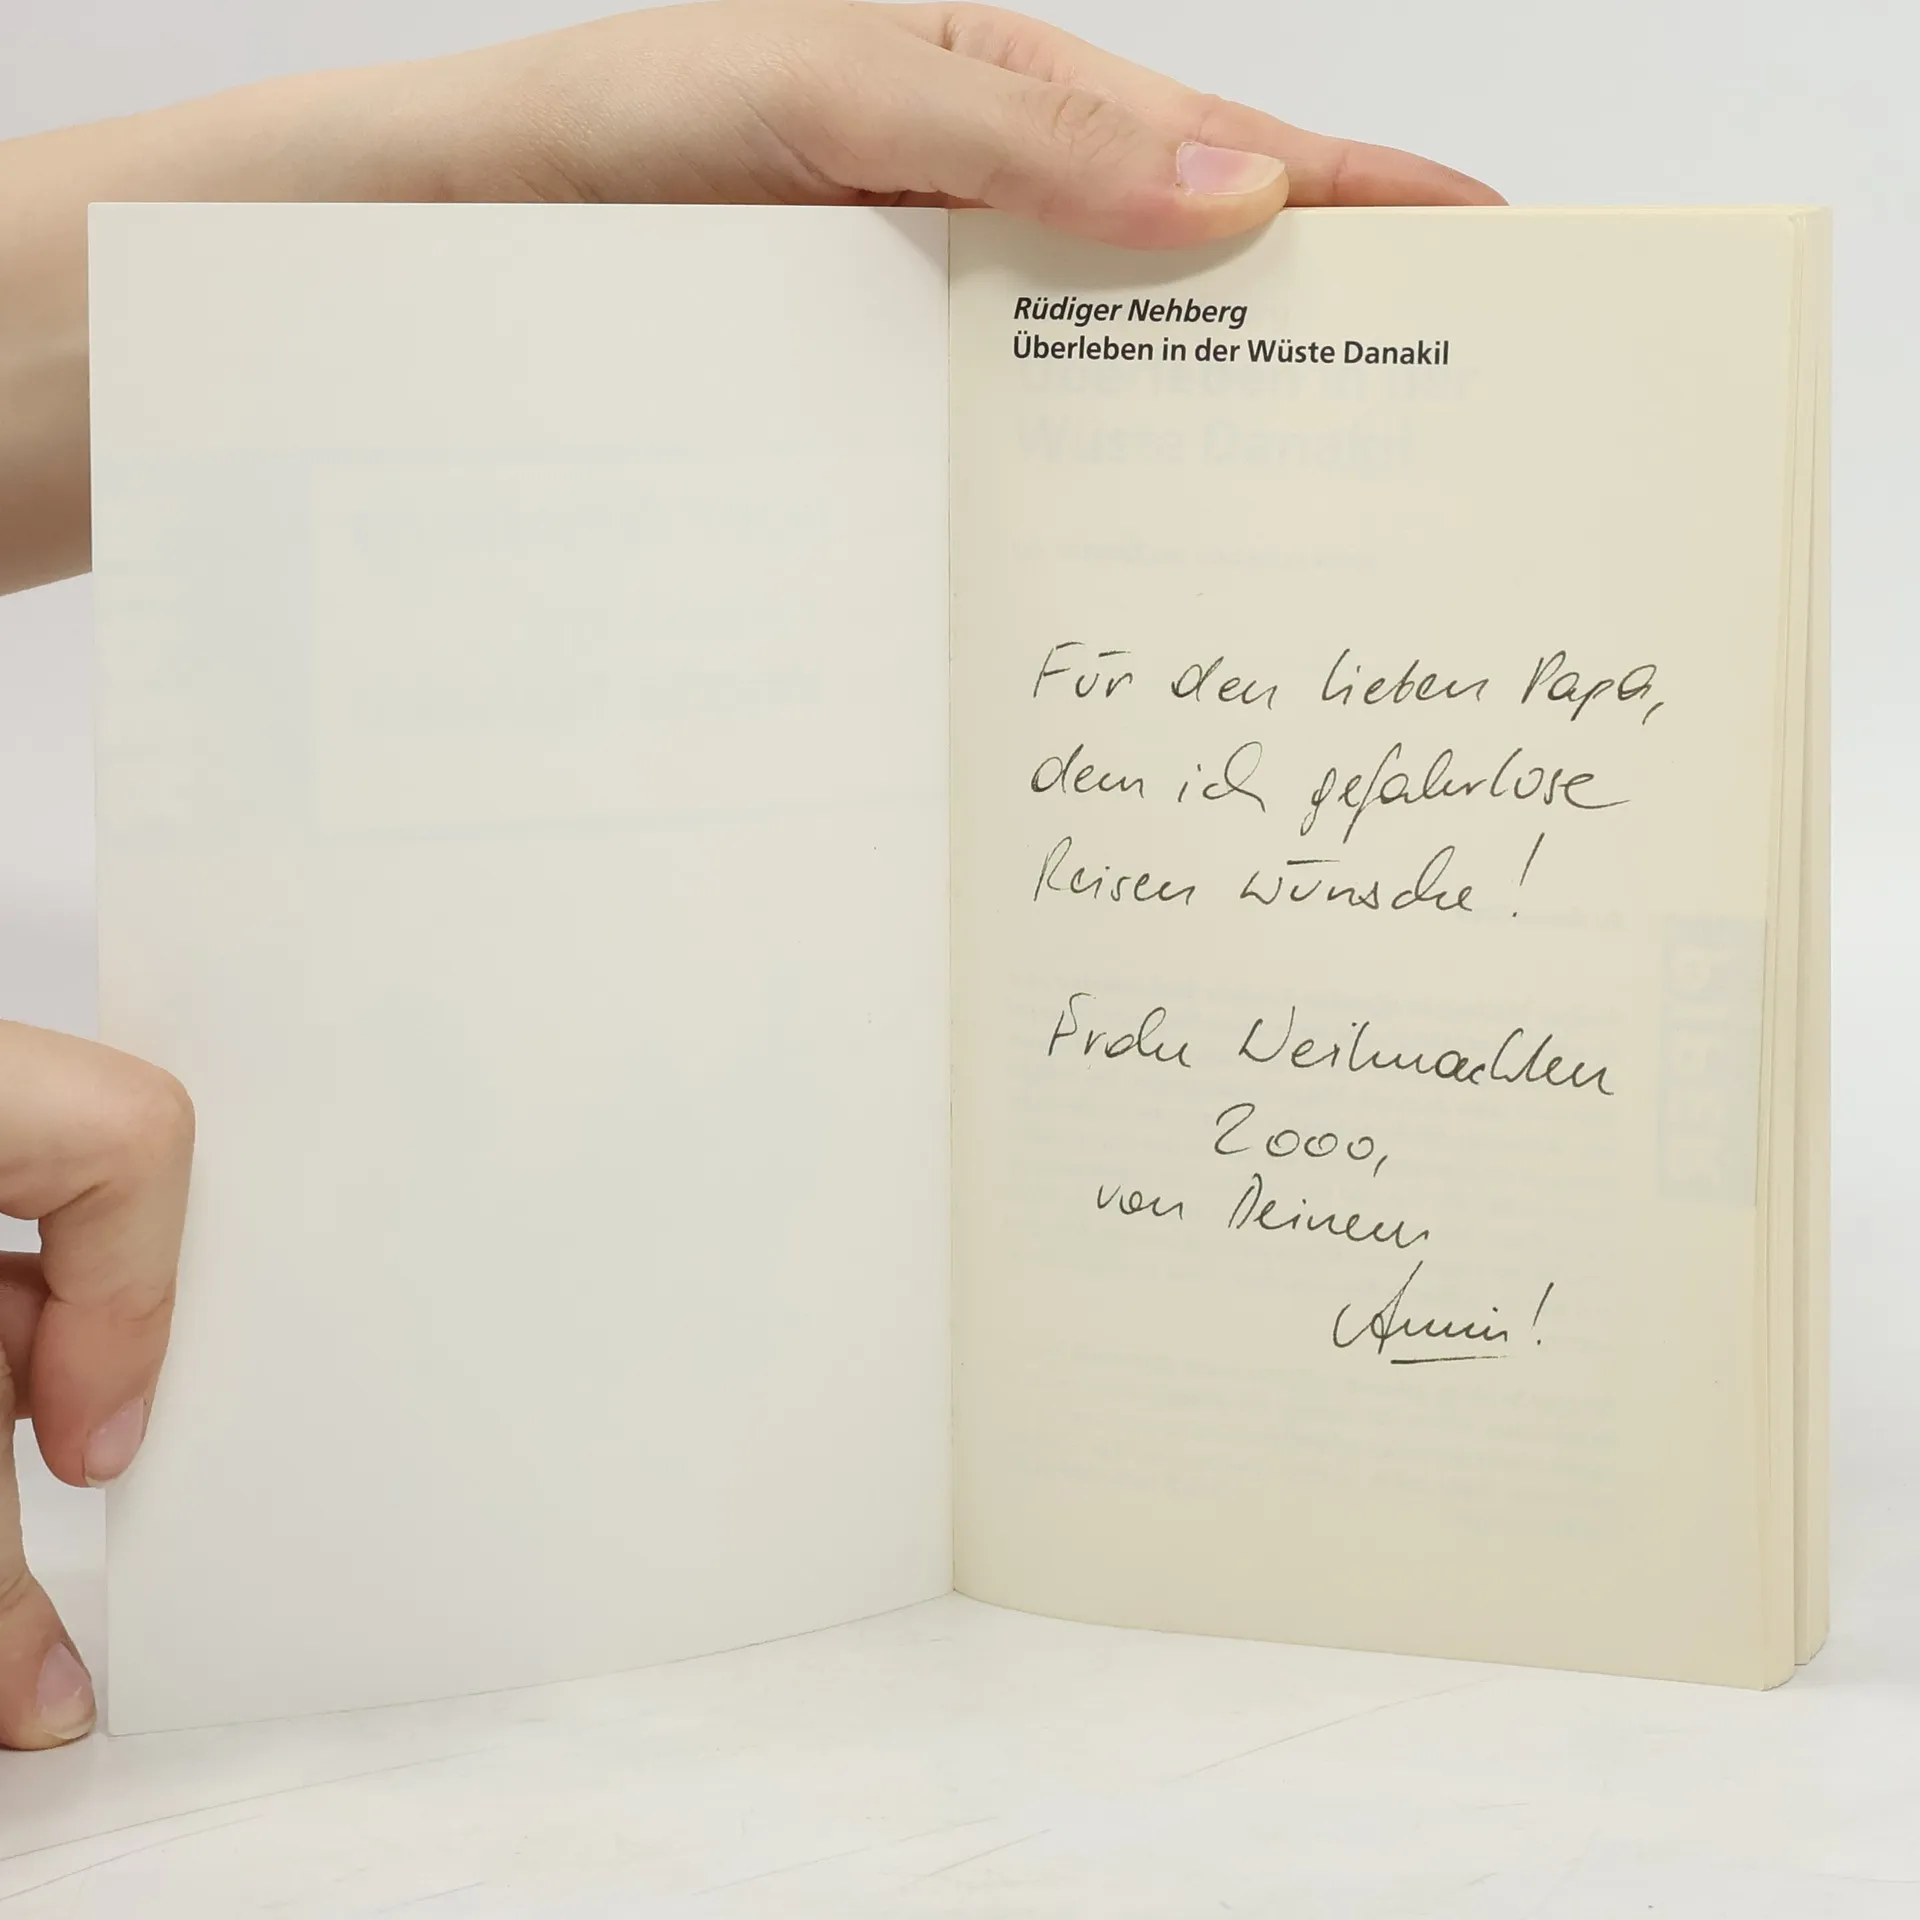 Rüdiger Nehberg
Überleben in der Wüste Danakil
Für den lieben Papa,
dem ich gefahrlose
Reisen wünsche!
Frohe Weihnachten
2000,
von Deinem
Armin!